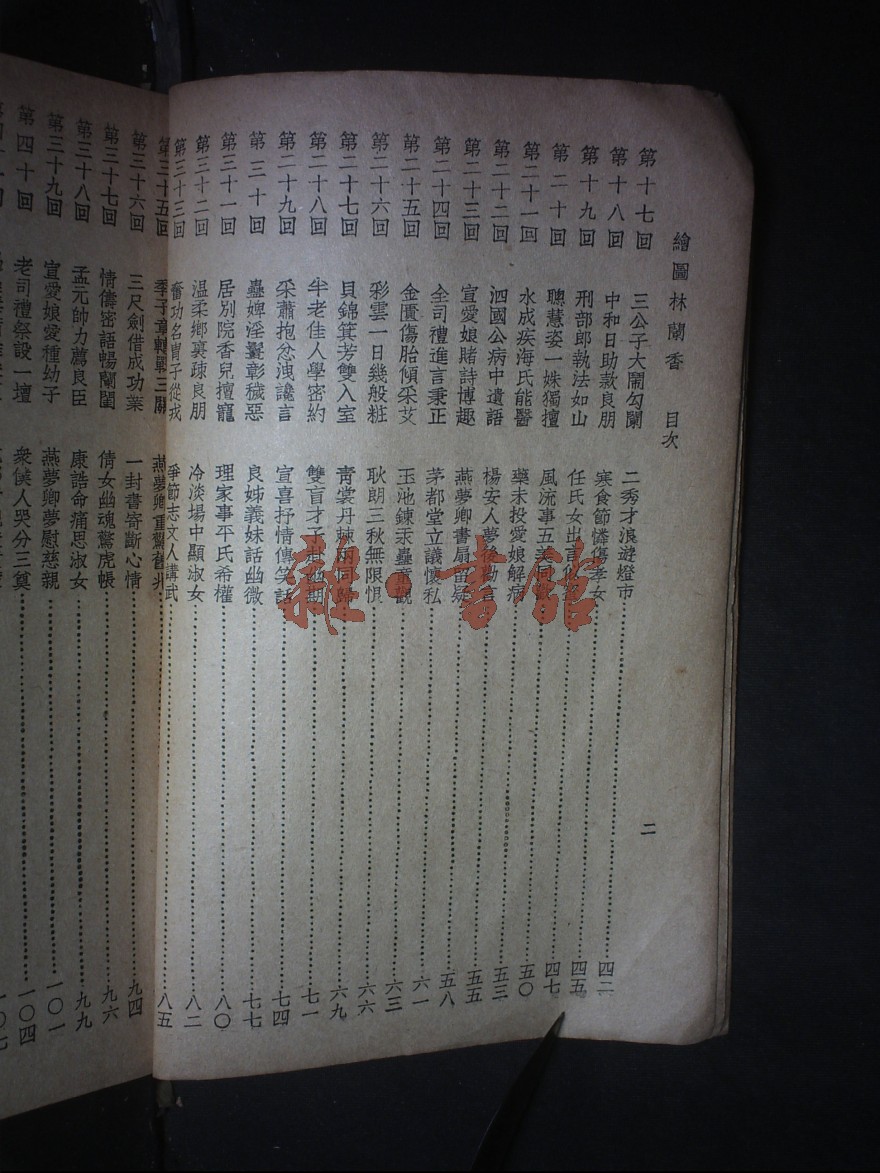 繪圖林蘭香 目次 二
第十七回 三公子大鬧勾闌 二秀才浪遊燈市 四二
第十八回 中和日助款良朋 寒食節憐傷孝女 四五
第十九回 刑部郎執法如山 任氏女出言 四七
第二十回 聰慧姿一姝獨擅 風流事五美同 五〇
第二十一回 水成疾海氏能醫 藥未投愛娘解病 五三
第二十二回 泗國公病中遺語 楊安人夢後勸言 五五
第二十三回 宣愛娘賭詩博趣 燕夢卿書扇留疑 五八
第二十四回 全司禮進言秉正 茅都堂立議懷私 六一
第二十五回 金匱傷胎傾采艾 玉池鍊汞蠱童觀 六三
第二十六回 彩雲一日幾般粧 耿朗三秋無限恨 六六
第二十七回 貝錦箕芳雙入室 青裳丹棘兩同歸 六九
第二十八回 半老佳人學密約 雙盲才子赴幽期 七一
第二十九回 采蕭抱忿洩讒言 宣喜抒情傳笑話 七四
第三十回 蠱婢淫釁彰穢惡 良姊義妹話幽微 七七
第三十一回 居別院香兒擅寵 理家事平氏希權 八〇
第三十二回 温柔鄉裏疎良朋 冷淡場中顯淑女 八二
第三十三回 奮功名胄子從戎 爭節志文人講武 八五
第三十五回 季子章轉戰三關 燕夢卿重驚舊兆
第三十六回 三尺劍借成功業 一封書寄斷心情 九四
第三十七回 情儔密語暢蘭閨 倩女幽魂驚虎帳 九六
第三十八回 孟元帥力薦良臣 康誥命痛思淑女 九九
第三十九回 宣愛娘愛種幼子 燕夢卿夢慰慈親 一〇一
第四十回 老司禮祭設一壇 衆侯人哭分三奠 一〇四
雜·書館